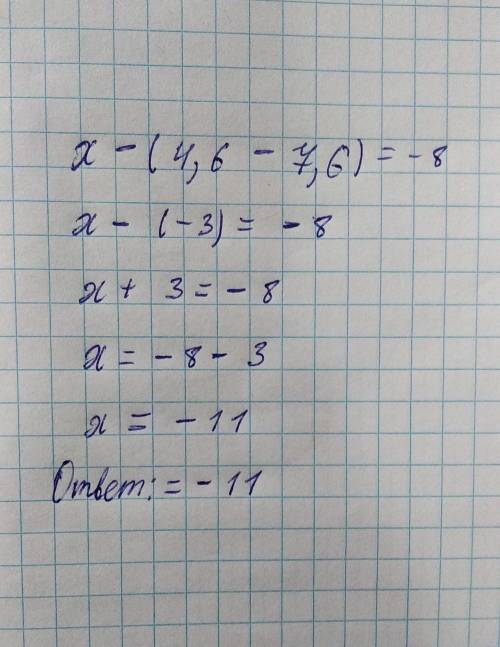 x - (4,6 - 7,6) = -8
x - (-3) = -8
x + 3 = -8
x = -8 - 3
x = -11
Ответ: = -11